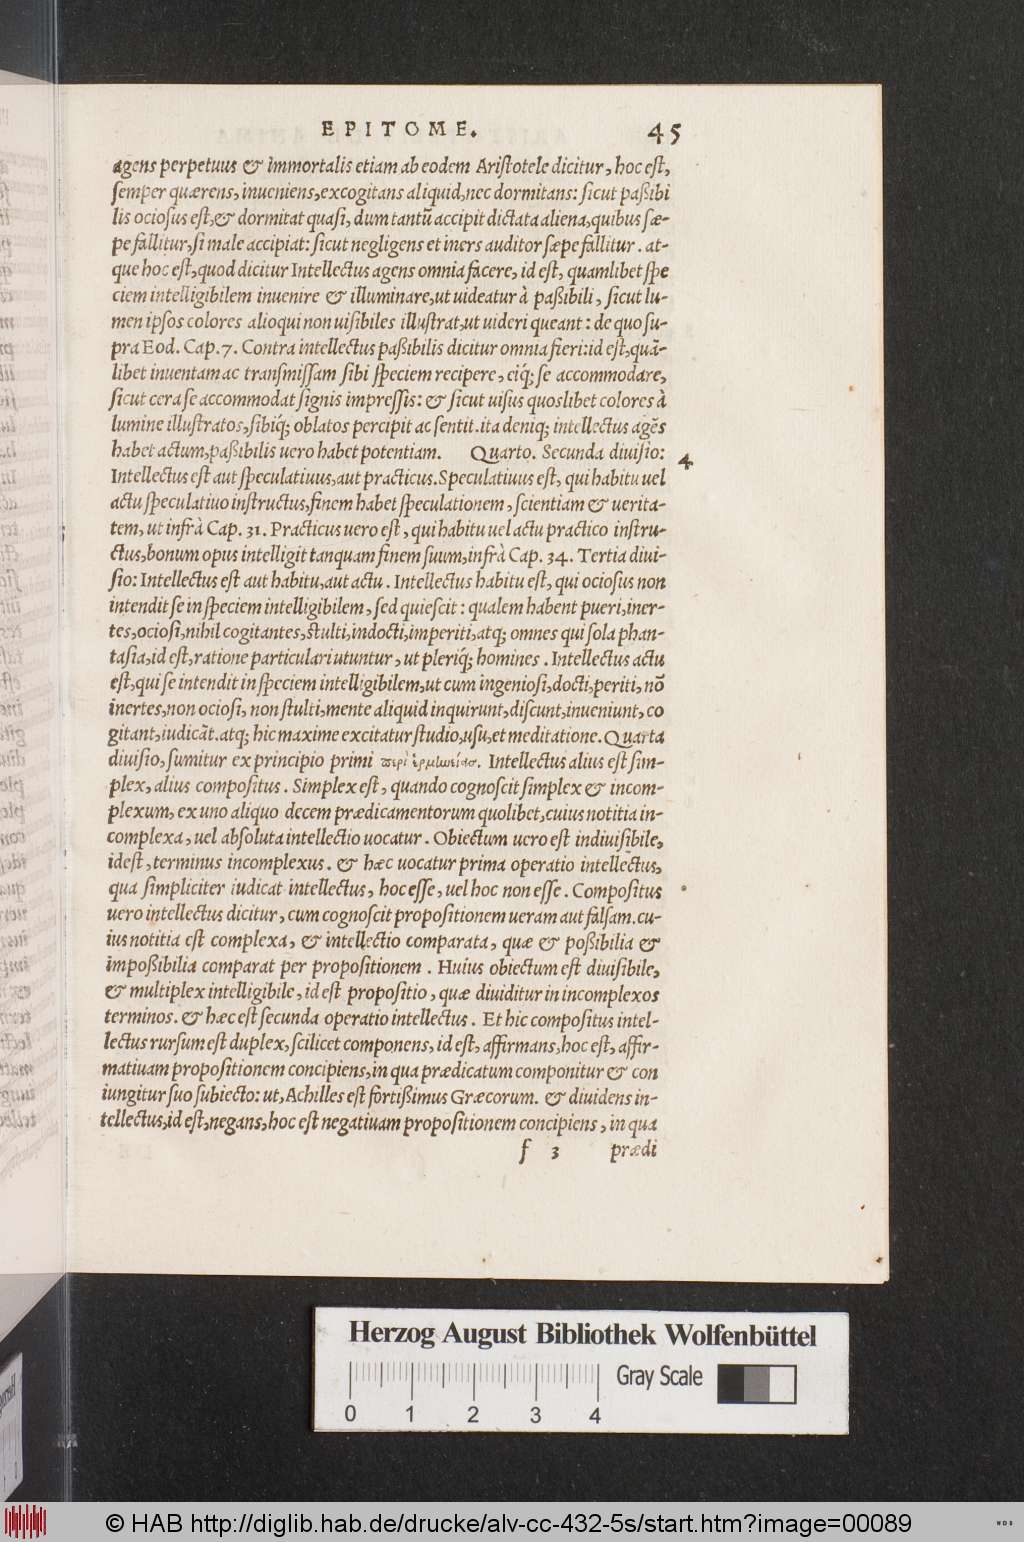 EPITOME. 45
agens perpetuus & immortalis etiam ab eodem Aristotele dicitur, hoc est,
semper quærens, inueniens, excogitans aliquid, nec dormitans: sicut paßibi
lis ociosus est, & dormitat quasi, dum tantũ accipit dictata aliena, quibus sæ-
pe fallitur, si male accipiat: sicut negligens et iners auditor sæpe fallitur. at-
que hoc est, quod dicitur Intellectus agens omnia facere, id est, quamlibet spe
ciem intelligibilem inuenire & illuminare, ut uideatur à paßibili, sicut lu-
men ipsos colores alioqui non uisibiles illustrat, ut uideri queant: de quo su-
pra Eod. Cap. 7. Contra intellectus paßibilis dicitur omnia fieri: id est, quã-
libet inuentam ac transmissam sibi speciem recipere, eiq́; se accommodare,
sicut cera se accommodat signis impressis: & sicut uisus quoslibet colores à
lumine illustratos, sibiq́; oblatos percipit ac sentit. ita deniq; intellectus agẽs
habet actum, paßibilis uero habet potentiam. Quarto. Secunda diuisio:
4
Intellectus est aut speculatiuus, aut practicus. Speculatiuus est, qui habitu uel
actu speculatiuo instructus, finem habet speculationem, scientiam & uerita-
tem, ut infrà Cap. 31. Practicus uero est, qui habitu uel actu practico instru-
ctus, bonum opus intelligit tanquam finem suum, infrà Cap. 34. Tertia diui-
sio: Intellectus est aut habitu, aut actu. Intellectus habitu est, qui ociosus non
intendit se in speciem intelligibilem, sed quiescit: qualem habent pueri, iner-
tes, ociosi, nihil cogitantes, stulti, indocti, imperiti, atq; omnes qui sola phan-
tasia, id est, ratione particulari utuntur, ut pleriq́; homines. Intellectus actu
est, qui se intendit in speciem intelligibilem, ut cum ingeniosi, docti, periti, nõ
inertes, non ociosi, non stulti, mente aliquid inquirunt, discunt, inueniunt, co
gitant, iudicãt. atq; hic maxime excitatur studio, usu, et meditatione. Quarta
diuisio, sumitur ex principio primi περὶ ἑρμηνείας. Intellectus alius est sim-
plex, alius compositus. Simplex est, quando cognoscit simplex & incom-
plexum, ex uno aliquo decem prædicamentorum quolibet, cuius notitia in-
complexa, uel absoluta intellectio uocatur. Obiectum uero est indiuisibile,
idest, terminus incomplexus. & hæc uocatur prima operatio intellectus,
qua simpliciter iudicat intellectus, hoc esse, uel hoc non esse. Compositus
uero intellectus dicitur, cum cognoscit propositionem ueram aut falsam. cu-
ius notitia est complexa, & intellectio comparata, quæ & poßibilia &
impoßibilia comparat per propositionem. Huius obiectum est diuisibile,
& multiplex intelligibile, id est propositio, quæ diuiditur in incomplexos
terminos. & hæc est secunda operatio intellectus. Et hic compositus intel-
lectus rursum est duplex, scilicet componens, id est, affirmans, hoc est, affir-
matiuam propositionem concipiens, in qua prædicatum componitur & con
iungitur suo subiecto: ut, Achilles est fortißimus Græcorum. & diuidens in-
tellectus, id est, negans, hoc est negatiuam propositionem concipiens, in qua
f 3 prædi
Herzog August Bibliothek Wolfenbüttel
Gray Scale
0 1 2 3 4
© HAB http://diglib.hab.de/drucke/alv-cc-432-5s/start.htm?image=00089